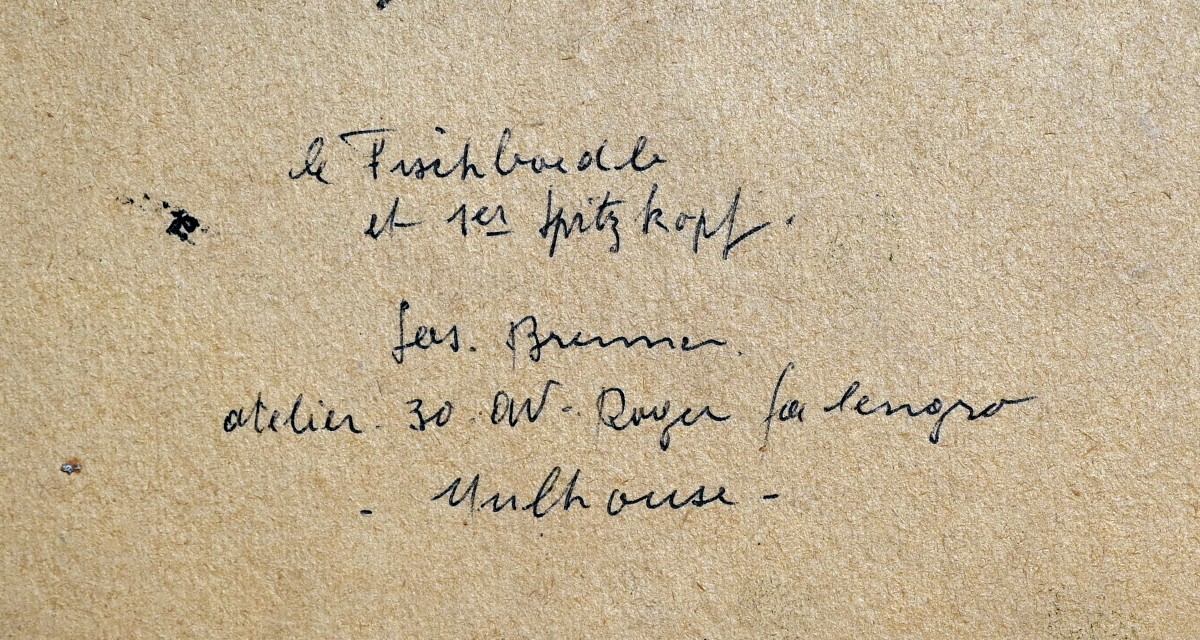 le Fischboedle
et 1er Spitzkopf.
Jos. Brenner.
atelier. 30. av. Roger Salengro
- Mulhouse -